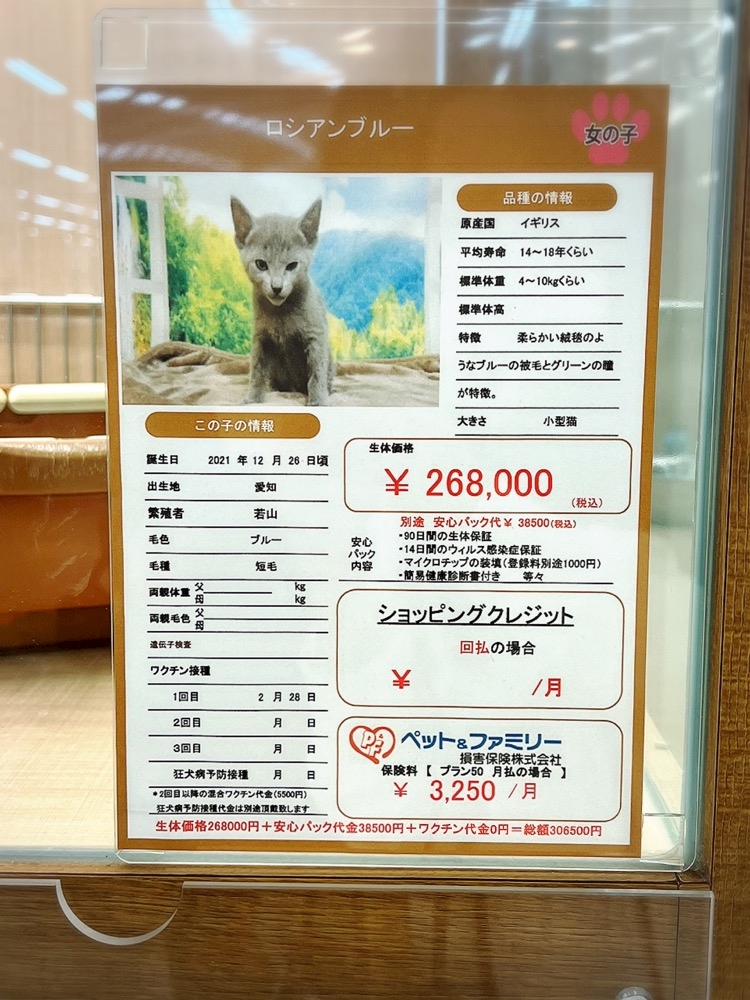 ロシアンブルー
女の子
品種の情報
原産国 イギリス
平均寿命 14～18年くらい
標準体重 4～10kgくらい
標準体高
特徴 柔らかい絨毯のよ
うなブルーの被毛とグリーンの瞳
が特徴。
大きさ 小型猫
この子の情報
誕生日 2021 年 12 月 26 日頃
出生地 愛知
繁殖者 若山
毛色 ブルー
毛種 短毛
両親体重 父 kg
母 kg
両親毛色 父
母
遺伝子検査
ワクチン接種
1回目 2 月 28 日
2回目 月 日
3回目 月 日
狂犬病予防接種 月 日
*2回目以降の混合ワクチン代金(5500円)
狂犬病予防接種代金は別途頂戴致します
生体価格
¥ 268,000
(税込)
別途 安心パック代¥ 38500(税込)
安心
パック
内容
・90日間の生体保証
・14日間のウィルス感染症保証
・マイクロチップの装填(登録料別途1000円)
・簡易健康診断書付き 等々
ショッピングクレジット
回払の場合
¥ /月
P&F
ペット&ファミリー
損害保険株式会社
保険料 【 プラン50 月払の場合 】
¥ 3,250 /月
生体価格268000円＋安心パック代金38500円＋ワクチン代金0円＝総額306500円